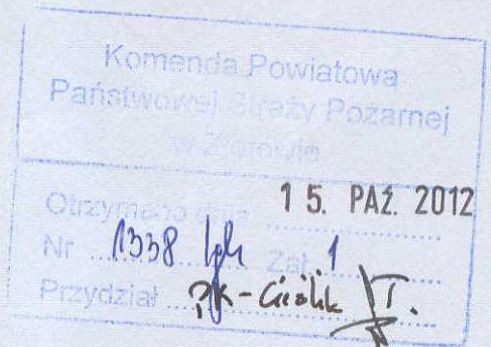 Komenda Powiatowa
Państwowej Straży Pożarnej
w Złotowie
Otrzymano dnia 15. PAŹ. 2012
Nr 1338 Zał 1
Przydział PK-Cieślik T.